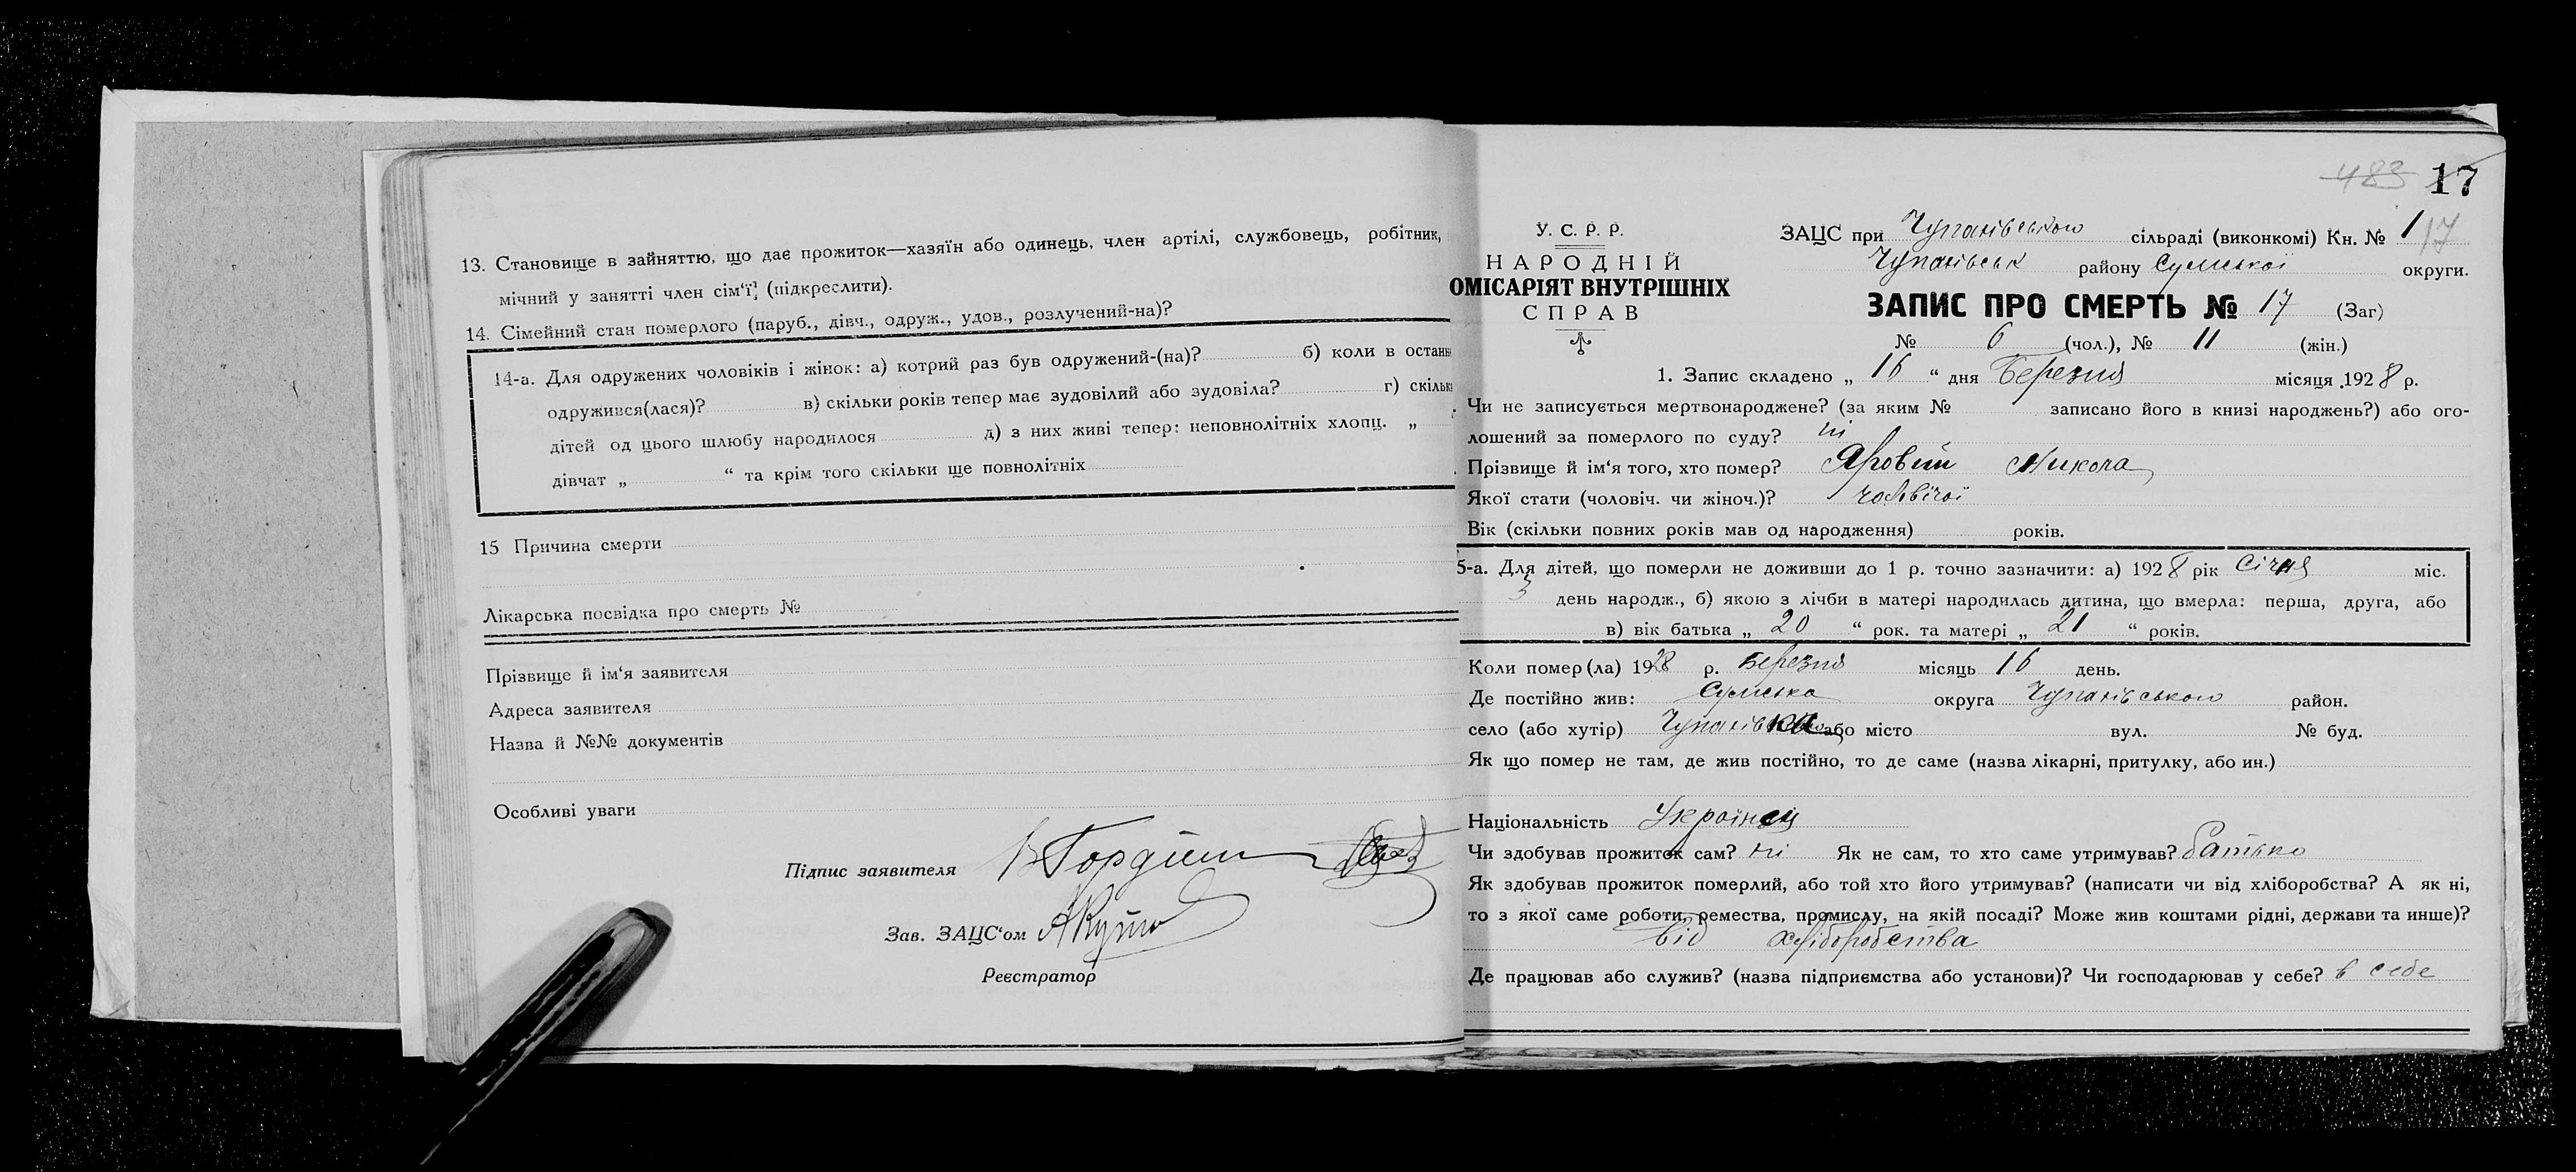 13. Становище в зайняттю, що дає прожиток—хазяїн або одинець, член артілі, службовець, робітник,
мічний у занятті член сім'ї (підкреслити).
14. Сімейний стан померлого (паруб., дівч., одруж., удов., розлучений-на)?
14-а. Для одружених чоловіків і жінок: а) котрий раз був одружений-(на)? б) коли в останн
одружився(лася)? в) скільки років тепер має зудовілий або зудовіла? г) скільк
дітей од цього шлюбу народилося д) з них живі тепер: неповнолітніх хлопц. „
дівчат „ “ та крім того скільки ще повнолітніх
15 Причина смерти
Лікарська посвідка про смерть №
Прізвище й ім'я заявителя
Адреса заявителя
Назва й №№ документів
Особливі уваги
Підпис заявителя
Зав. ЗАЦС'ом
Реєстратор
483 17
У. С. Р. Р.
НАРОДНІЙ
ОМІСАРІЯТ ВНУТРІШНІХ
СПРАВ
ЗАЦС при Чупахівською сільраді (виконкомі) Кн. № 1 17
Чупахівськ району Сумської округи.
ЗАПИС ПРО СМЕРТЬ № 17 (Заг)
№ 6 (чол.), № 11 (жін.)
1. Запис складено „ 16 “ дня Березня місяця 1928 р.
Чи не записується мертвонароджене? (за яким № записано його в книзі народжень?) або ого-
лошений за померлого по суду? ні
Прізвище й ім'я того, хто помер? Яровий Микола
Якої стати (чоловіч. чи жіноч.)? чоловічої
Вік (скільки повних років мав од народження) років.
5-а. Для дітей, що померли не доживши до 1 р. точно зазначити: а) 1928 рік Січня міс.
3 день народж., б) якою з лічби в матері народилась дитина, що вмерла: перша, друга, або
в) вік батька „ 20 “ рок. та матері „ 21 “ років.
Коли помер(ла) 1928 р. Березня місяць 16 день.
Де постійно жив: Сумська округа Чупахівською район.
село (або хутір) Чупахівка або місто вул. № буд.
Як що помер не там, де жив постійно, то де саме (назва лікарні, притулку, або ин.)
Національність Українец
Чи здобував прожиток сам? ні Як не сам, то хто саме утримував? батько
Як здобував прожиток померлий, або той хто його утримував? (написати чи від хліборобства? А як ні,
то з якої саме роботи, ремества, промислу, на якій посаді? Може жив коштами рідні, держави та инше)?
від хліборобства
Де працював або служив? (назва підприємства або установи)? Чи господарював у себе? в себе